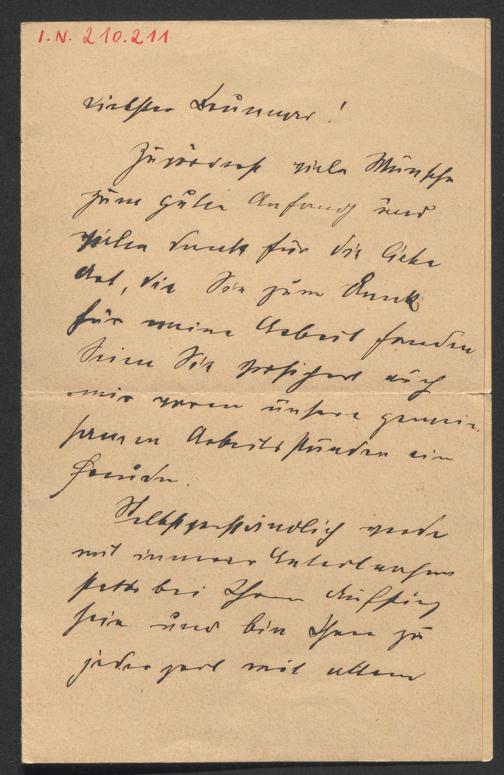 I.N. 210.211
Liebster Brunner!
Zuvörderst viele Wünsche
zum guten Anfang und
vielen Dank für die liebe
Art, die Sie zum Dank
für meine Arbeit fanden
Seien Sie versichert auch
mir waren unsere gemein-
samen Arbeitsstunden ein
Freude.
Selbstverständlich werde
mit innerer Anteilnahme
stets bei Ihrem Aufstieg
sein und bin Ihnen zu
jeder Zeit mit allem